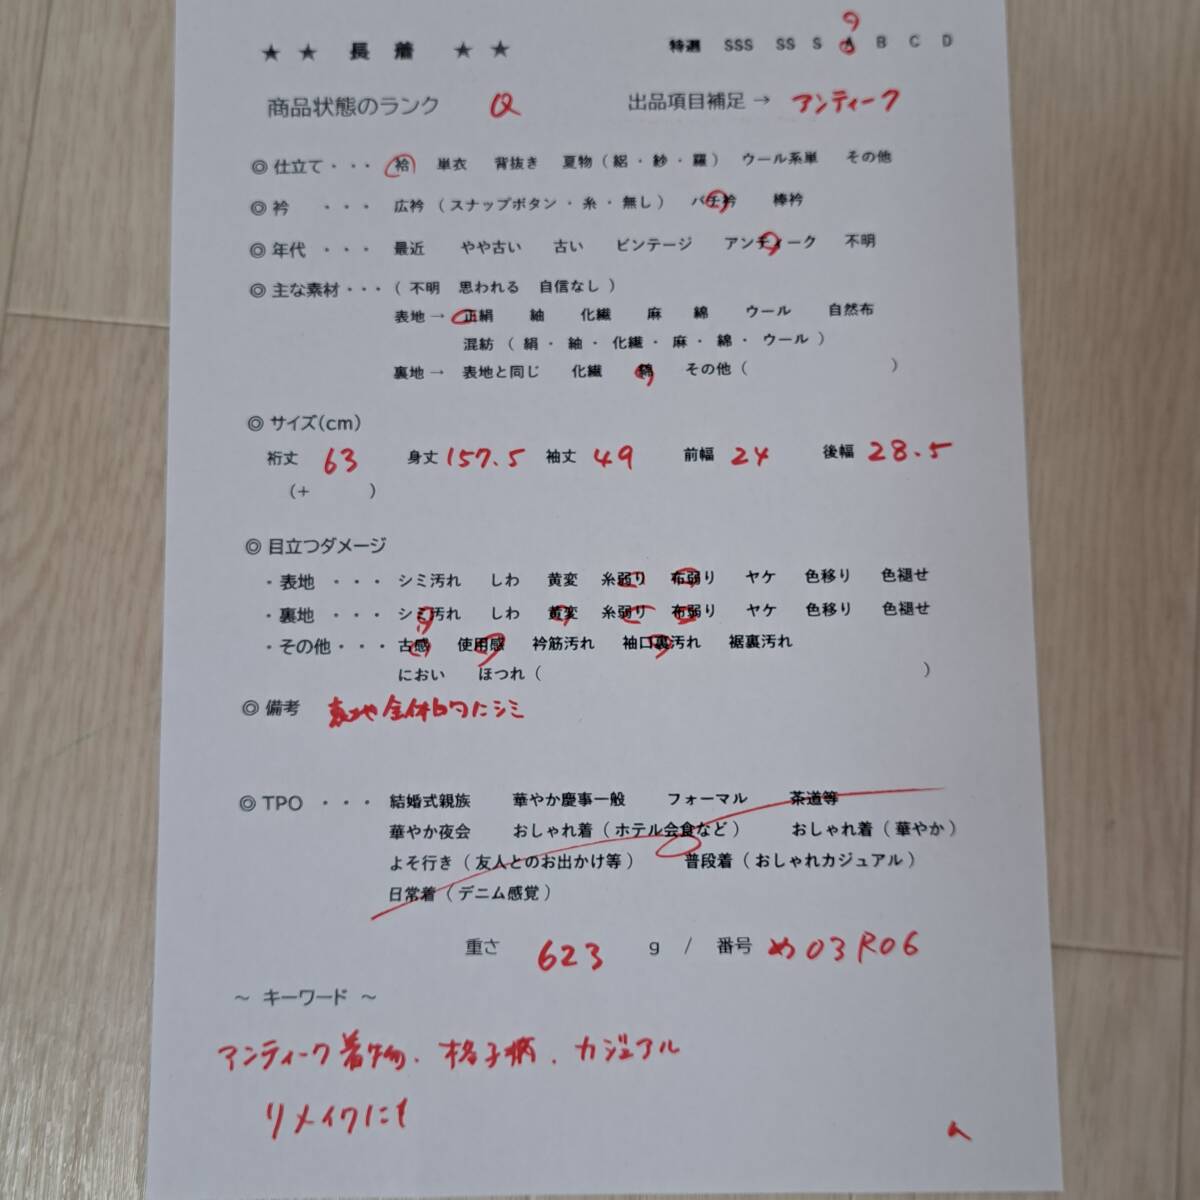 ★ ★ 長 着 ★ ★ 特選 SSS SS S A B C D
商品状態のランク 出品項目補足 → アンティーク
◎ 仕立て・・・ 袷 単衣 背抜き 夏物 ( 絽 ・ 紗 ・ 羅 ) ウール系単 その他
◎ 衿 ・・・ 広衿 ( スナップボタン ・ 糸 ・ 無し ) バチ衿 棒衿
◎ 年代 ・・・ 最近 やや古い 古い ビンテージ アンティーク 不明
◎ 主な素材・・・ ( 不明 思われる 自信なし )
表地 → 正絹 紬 化繊 麻 綿 ウール 自然布
混紡 ( 絹 ・ 紬 ・ 化繊 ・ 麻 ・ 綿 ・ ウール )
裏地 → 表地と同じ 化繊 綿 その他 ( )
◎ サイズ(cm)
裄丈 63 身丈 157.5 袖丈 49 前幅 24 後幅 28.5
(+ )
◎ 目立つダメージ
・表地 ・・・ シミ汚れ しわ 黄変 糸弱り 布弱り ヤケ 色移り 色褪せ
・裏地 ・・・ シミ汚れ しわ 黄変 糸弱り 布弱り ヤケ 色移り 色褪せ
・その他・・・ 古感 使用感 衿筋汚れ 袖口裏汚れ 裾裏汚れ
におい ほつれ ( )
◎ 備考 全体的にシミ
◎ TPO ・・・ 結婚式親族 華やか慶事一般 フォーマル 茶道等
華やか夜会 おしゃれ着 ( ホテル会食など ) おしゃれ着 ( 華やか )
よそ行き ( 友人とのお出かけ等 ) 普段着 ( おしゃれカジュアル )
日常着 ( デニム感覚 )
重さ 623 g / 番号 め03R06
～ キーワード ～
アンティーク着物、格子柄、カジュアル
リメイクにも